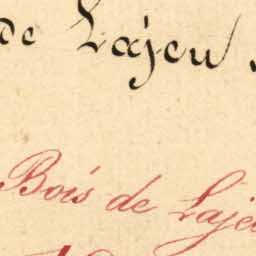 de Lajeu
Bois de Laje